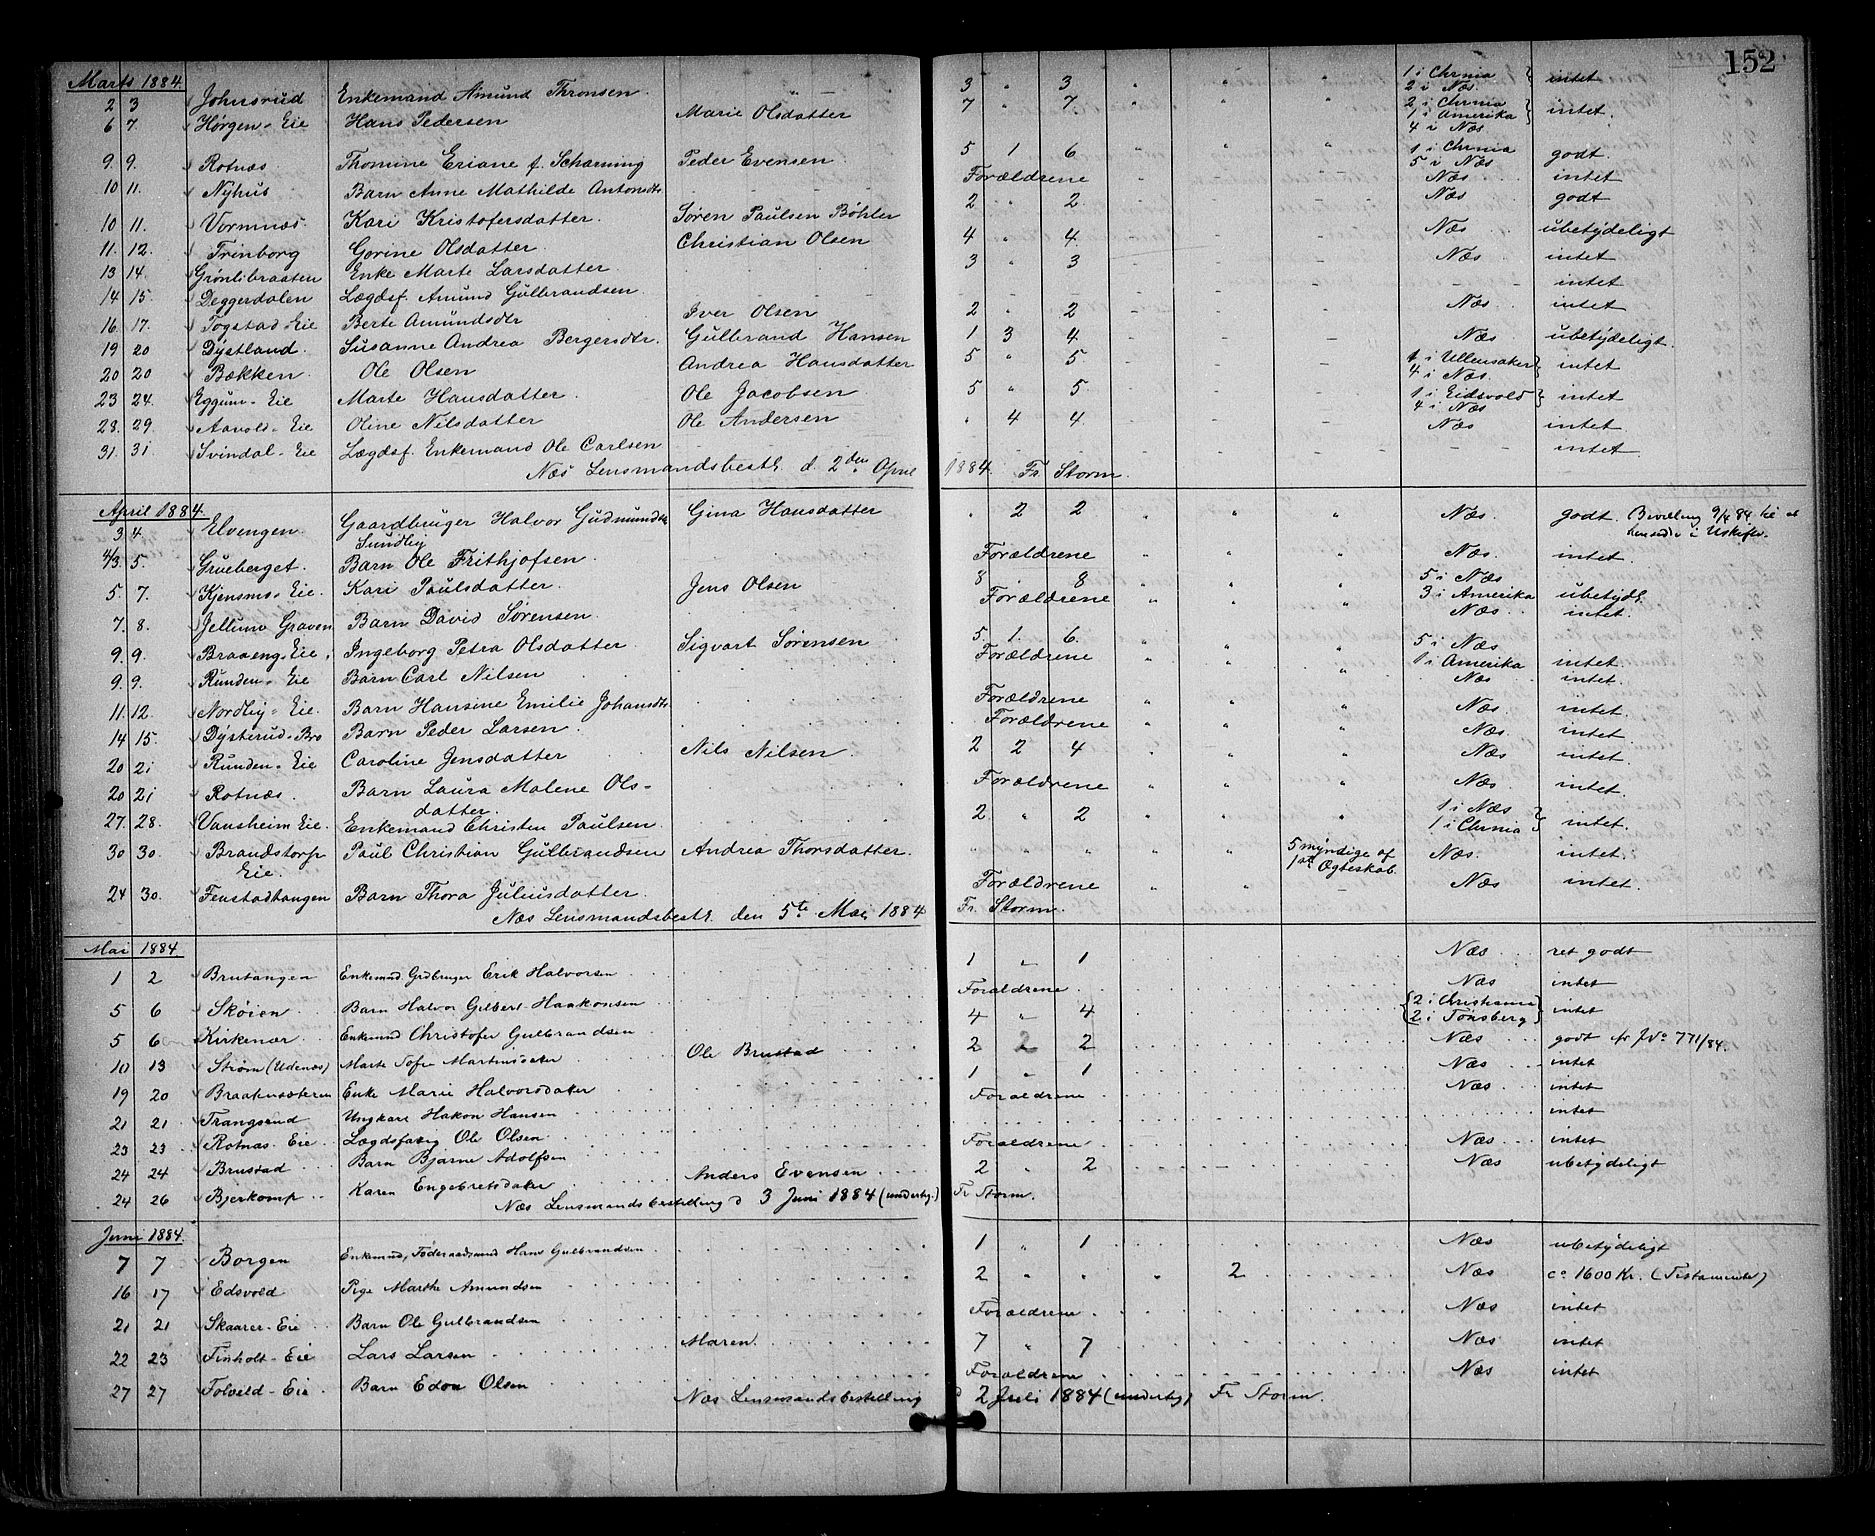 152
Marts 1884.
2 3 Johnsrud Enkemand Amund Thronsen. 3 " 3 " " " 1 i Chrnia } intet
2 i Næs.
6 7. Hørgen-Eie Hans Pedersen Marie Olsdatter 7 " 7. " " " 2 i Chrnia } intet.
1 i Amerika
4 i Næs
9. 9. Rotnæs Thomine Eriane f. Scharning Peder Evensen 5 1 6 " " " 1 i Chrnia godt.
5 i Næs
10 11. Nyhus Barn Anne Mathilde Antonsdtr Forældrene Næs intet
10 11. Vormnæs. Kari Kristofersdatter. Søren Paulsen Bøhler 2 " 2. Næs godt
11. 12. Trinborg Gorine Olsdatter Christian Olsen 4 " 4. Næs ubetydeligt
13 14. Grønlibraaten Enke Marte Larsdatter 3 " 3 Næs intet
14 15. Deggerdalen Lægdsf. Amund Gulbrandsen - - - intet
16. 17. Togstad-Eie Berte Amundsdtr Iver Olsen 2 " 2 Næs intet
19 20 Dystland. Susanne Andrea Bergersdtr. Gulbrand Hansen 1 3 4 Næs ubetydeligt.
20 20 Bækken Ole Olsen Andrea Hansdatter 5 " 5. 1 i Ullensaker } intet
4 i Næs.
23 24. Eggum-Eie Marte Hansdatter. Ole Jacobsen 5 " 5. 1 i Eidsvold } intet
4 i Næs
28. 29. Aavold-Eie Oline Nilsdatter Ole Andersen " 4 4 Næs intet.
31. 31 Svindal-Eie Lægdsf. Enkemand Ole Carlsen - - intet.
Næs Lensmandsbestl. d. 2den April 1884. Fr Storm.
April 1884.
3 4. Elvengen. Gaardbruger Halvor Gudmundsen Gina Hansdatter " 2 2 " " " Næs. godt. Bevilling 9/4 84
Sundby
4/3. 5. Grueberget. Barn Ole Frithjofsen Forældrene Næs. intet.
5. 7. Kjensmo-Eie. Kari Paulsdatter. Jens Olsen 8 " 8 5 i Næs ubetydl.
3 i Amerika
7. 8. Jellum Graven Barn David Sørensen. Forældrene Næs intet.
9. 9. Braaeng-Eie. Ingeborg Petra Olsdatter Sigvart Sørensen 5. 1. 6. 5 i Næs intet.
1 i Amerika
9. 9. Runden-Eie Barn Carl Nilsen Forældrene Næs intet.
11. 12. Nordby-Eie. Barn Hansine Emilie Johansdtr Forældrene Næs. intet.
14 15. Dysterud-Bro Barn Peder Larsen Forældrene Næs intet.
20 21 Runden-Eie Caroline Jensdatter Nils Nilsen 2 2 4 Næs intet.
20 21 Rotnæs. Barn Laura Malene Ols-
datter. Forældrene Næs. intet.
27. 28. Vansheim Eie. Enkemand Christen Paulsen. 2 " 2 1 i Næs } intet.
1 i Chrnia
30 30. Brandstorp Paul Christian Gulbrandsen Andrea Thorsdatter. " " " " " 5 myndige af Næs. intet.
Eie. 1ste Ægteskab.
24 30. Fenstadhangen Barn Thora Juliusdatter Forældrene " " - Næs intet.
Næs Lensmandsbestl. den 5te Mai 1884 Fr. Storm.
Mai 1884.
1 2 Brutangen Enkemd. Grdbruger Erik Halvorsen 1 " 1 Næs ret godt
5 6 Skøien Barn Halvor Gilbert Haakonsen Forældrene Næs intet
5 6 Kirkenær Enkemd Christofer Gulbrandsen 4 " 4 { 2 i Christiania } intet
2 i Tønsberg
10 13 Strøm (Udenæs) Marte Sofie Martinsdatter Ole Brustad 2 2 2 Næs godt 771/84.
19 20 Braatensæteren Enke Marie Halvorsdatter 1 " 1 Næs intet
21 21 Trangsrud Ungkarl Hakon Hansen Forældrene Næs intet
23 23 Rotnæs-Eie Lægdsfattig Ole Olsen intet
24 24 Brustad Barn Bjarne Adolfsen Forældrene Næs intet
24 26 Bjerkomp Karen Engebretsdatter Anders Evensen 2 " 2 Næs ubetydeligt
Næs Lensmandsbestilling d 3 Juni 1884 (underty.) Fr Storm.
Juni 1884.
7 7 Borgen Enkemnd, Føderaadsmand Hans Gulbrandsen 1 " 1 Næs ubetydeligt
16 17 Edsvold Pige Marthe Amundsen 2 " " " 2 Næs ca 1600 Kr. (Testamente)
21 21 Skaarer-Eie Barn Ole Gulbrandsen Forældrene Næs intet
22 23 Finholt-Eie Lars Larsen Maren 7 " 7 Næs intet
27 27 Tolveld-Eie Barn Edon Olsen Forældrene Næs intet
Næs Lensmandsbestilling d 2 Juli 1884 (underty) Fr Storm.